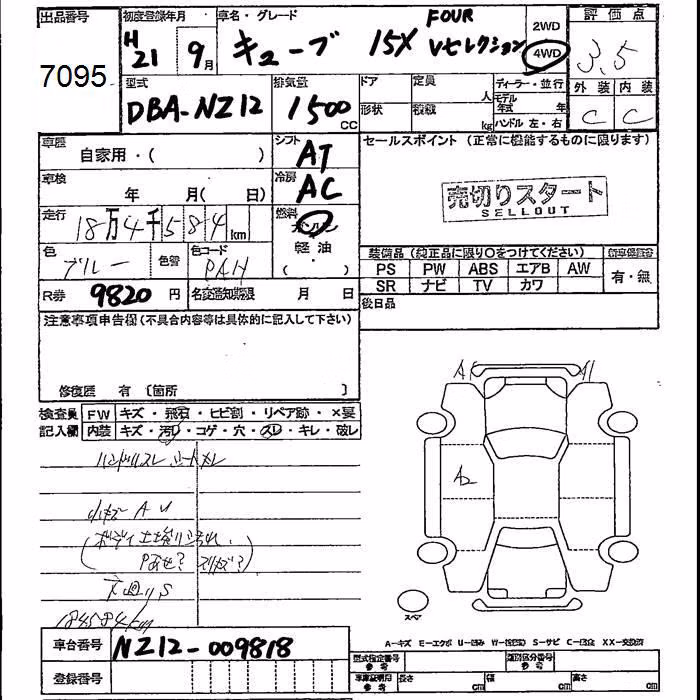 出品番号 初度登録年月 車名・グレード 2WD 評価点
7095 H21 9月 キューブ 15X FOUR Vセレクション 4WD 3.5
型式 排気量 ドア 定員 人 ディーラー・並行 外装 内装
DBA-NZ12 1500 CC 形状 積載 kg モデル年式 年 C C
ハンドル 左・右
車歴 自家用・( ) シフト AT セールスポイント (正常に機能するものに限ります)
車検 年 月( 日) 冷房 AC 売切りスタート
SELLOUT
走行 18万4千584km 燃料 ガソリン
軽油
( ・ )
色 ブルー 色替 色コード 装備品 (純正品に限り○をつけてください) 新車保証書
PS PW ABS エアB AW 有・無
SR ナビ TV カワ
R券 9820円 名変通知期限 月 日 後日品
注意事項申告欄 (不具合内容等は具体的に記入して下さい)
修復歴 有 〔箇所 〕
検査員 FW キズ・飛石・ヒビ割・リペア跡・×要
記入欄 内装 キズ・汚レ・コゲ・穴・スレ・キレ・破レ
A1 A1
A2
小キズ A U
184584km
スペア
A-キズ E-エクボ U-凹み W-(板金波) S-サビ C-腐食 XX-交換済
車台番号 NZ12-009818
登録番号
型式指定番号 参考 類別区分番号 参考
車庫証明用 参考 長さ cm 幅 cm 高さ cm